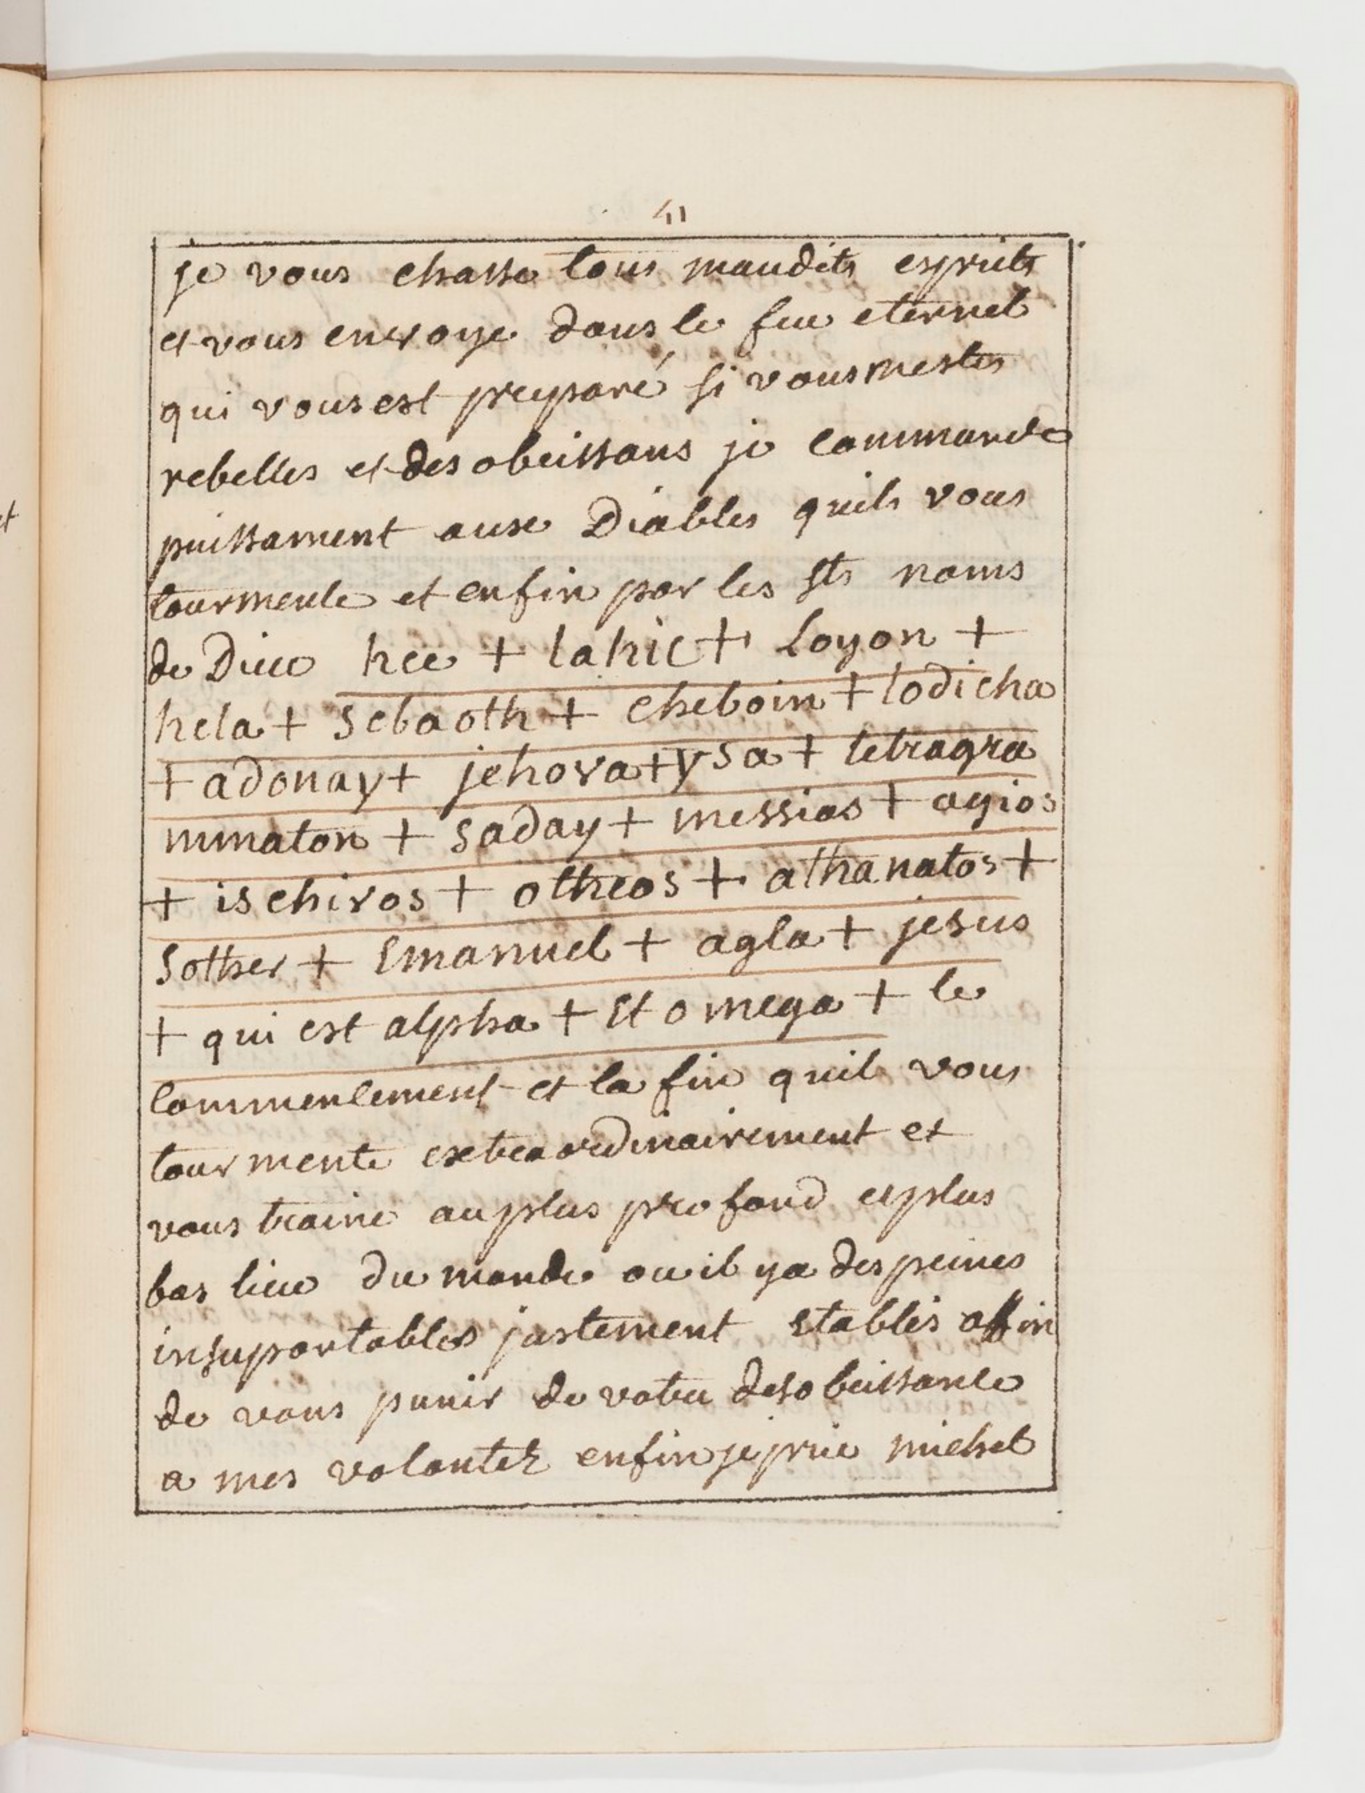 41
je vous chasse tous maudits esprits
et vous envoye dans le feu eternel
qui vous est preparé si vous mestes
rebelles et desobeissans je commande
puissament aux Diables quils vous
tourmente et enfin par les sts noms
de Dieu hee + lahic + Loyon +
hela + Sebaoth + cheboin + lodicha
+ adonay + jehova + ysa + tetragra
mmaton + saday + messias + agios
+ ischiros + otheos + athanatos +
Sother + Emanuel + agla + jesus
+ qui est alpha + Et omega + le
commencement et la fin quil vous
tourmente extraordinairement et
vous traine au plus profond et plus
bas lieu du monde ou il y a des peines
insuportables justement Etablis affin
de vous punir de votre desobeissance
a mes volontez enfin je prie michel